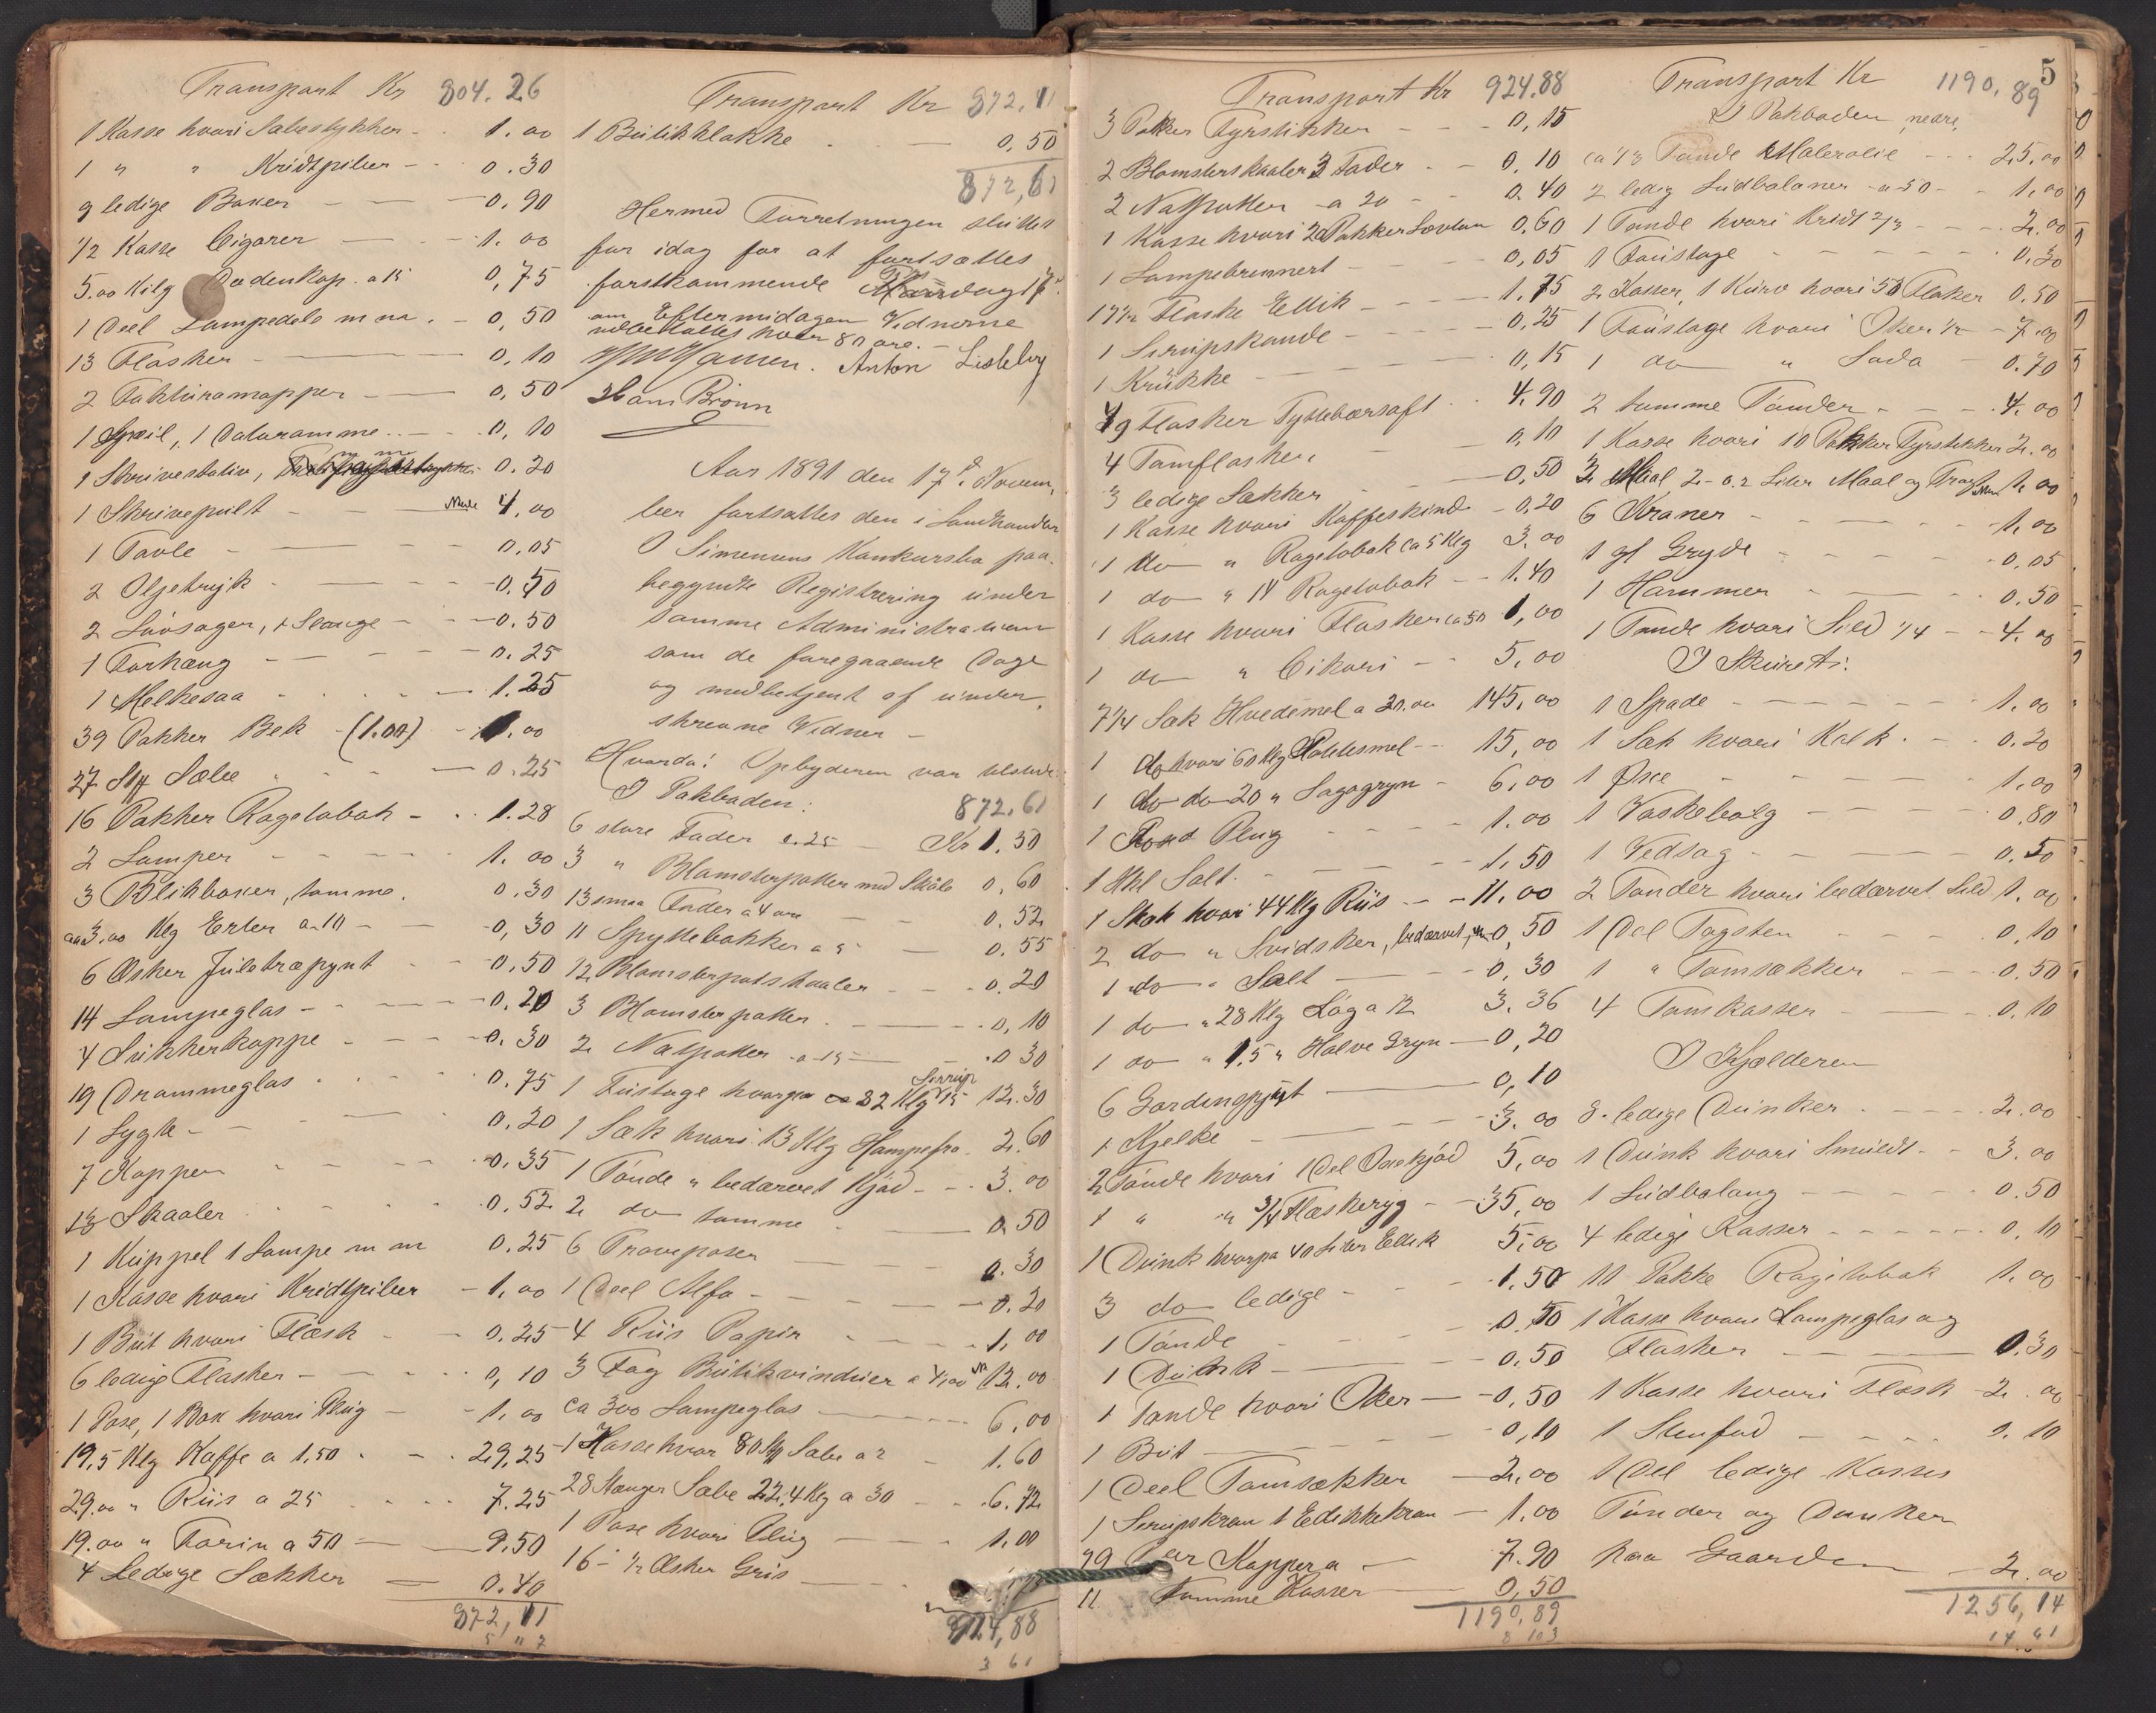 Transport Kr 804.26
1 Kasse hvori Sæbestykker - 1.00
1 " " Kridtpiber - 0.30
9 ledige Baxer - 0.90
1/2 Kasse Cigarer - 1.00
5.00 Kilg Dødenkop. a 15 0,75
1 Deel Lampedele m m. - 0,50
13 Flasker - 0,10
2 Fakturamapper - 0,50
1 Speil, 1 Dataramme - 0,10
1 Skrivestativ, m m 0.20
1 Skrivepult 4,00
1 Tavle - 0.05
2 Oljetryk - 0.50
2 Løvsager, - 0.50
1 Forhæng - 0.25
1 Melkesaa - 1.25
39 Pakker Bek (1.00) - 1.00
27 Stk Sæbe - 0.25
16 Pakker Ragetobak - 1.28
2 Lamper - 1.00
3 Blikbaxer, tomme. 0.30
3.00 Klg Erter a 10 - 0,30
6 Æsker Juletræpynt - 0.50
14 Lampeglas - 0.20
4 Sukkerkoppe - 0.30
19 Drammeglas 0.75
1 Lygte - 0.20
7 Kopper 0.35
13 Skaaler 0.52
1 Kuppel 1 Lampe m m 0.25
1 Kasse hvori Kridtpiber - 1,00
1 Bøt hvori Flæsk - 0.25
6 ledige Flasker - 0,10
1 Pose, 1 Bax hvori Plug - 1.00
19.5 Klg Kaffe a 1,50 - 29,25
29.00 " Riis a 25 7.25
19.00 " Farin a 50 - 9,50
4 Ledige Sækker - 0.40
872,11
Transport Kr 872,11
1 Butikklokke - 0,50
872,61
Hermed Forretningen sluttet
for idag for at fortsættes
førstkommende
om Eftermidagen Vidnerne
udbetaltes hver 80 øre. -
Anton Lisleby
Hans Brønn
Aar 1891 den 17de Novem,
ber fortsattes den i Landhandler
O Simensens Konkursbo paa-
begyndte Registrering under
samme Administration
som de foregaaende Dage
og medbetjent af under,
skrevne Vidner -
Hvorda! Opbyderen var tilstede
I Pakboden: 872.61
6 store Fader a. 25 - Kr 1.50
3 " Blomsterpotter med Skåle 0,60
13 smaa Fader a 4 øre - 0.52
11 Spyttebakker a 5 - 0.55
12 Blomsterpotskaaler - 0.20
3 Blomsterpotter - 0,10
2 Natpotter a 15 - 0 30
1 Fustage hvorpaa ca 82 Klg Sirup 15 12.30
1 Sæk hvori 13 Klg Hampefrø 2.60
1 Tønde " bedærvet Kjød - 3.00
2 do tomme - 0.50
6 Traveposer 0.30
1 Deel Alfa - 0.20
4 Riis Papir - 1,00
3 Fag Butikvinduer a 4,00 12.00
ca 300 Lampeglas - 6,00
1 Kasse hvor 80 Stk Sæbe a 2 - 1.60
28 Stænger Sæbe 22,4 Klg a 30 - 6.72
1 Pose hvori Plug - 1.00
16 - 1/2 Æsker Gris -
924,88
5
Transport Kr 924.88
3 Pakker Fyrstikker - 0,15
2 Blomsterskaaler 3 Fader - 0,10
2 Natpotter a 20 - 0.40
1 Kasse hvori 0,60
1 Lampebrennert - 0,05
17 1/2 Flaske Eddik - 1.75
1 Sirupskande - 0,25
1 Krukke - 0,15
49 Flasker Tyttebærsaft - 4.90
4 Tomflasker 0,10
3 ledige Sækker - 0,50
1 Kasse hvori Kaffeskind - 0,20
1 do " Ragetobak ca 5 Klg 3.00
1 do " 14 Ragetobak - 1.40
1 Kasse hvori Flasker ca 50 1,00
1 do " Cikori - 5,00
7 1/4 Sæk Hvedemel a 20.00 145,00
1 do hvori 60 Klg Potetesmel - 15,00
1 do do 20 " Sagogryn - 6,00
1 Plug - 1.00
1 Hkl Salt - 1,50
1 Sæk hvori 44 Klg Riis - 11,00
2 do " Svidsker, bedærvet, 0,50
1 do " Salt - 0,30
1 do " 28 Klg Løg a 12 3.36
1 do " 1.5 " Halve Gryn - 0,20
6 Gardinspynt - 0,10
1 Kjelke - 3.00
2 Tønde hvori 1 Del Oxekjød 5,00
1 " " 3/4 Flæskeryg - 35,00
1 Dunk hvorpaa 40 Liter Eddik 5,00
3 do ledige - 1.50
1 Tønde - 0.50
1 Dunk - 0,50
1 Tønde hvori Oker - 0,50
1 Bøt - 0,10
1 Deel Tomsækker - 2,00
1 Sirupskran 1 Eddikkekran - 1,00
79 Par Kopper a - 7.90
11 Tomme Kasser - 0,50
1190,89
Transport Kr 1190,89
I Pakboden nedre,
ca 1/3 Tønde Malerolie - 25,00
2 ledig Sildbalaner a 50 - 1,00
1 Tønde hvori Kridt 2/3 - 2,00
1 Fustage - 0,30
2 Kasser, 1 Kurv hvori 50 Flaker 0.50
1 Fustage hvori Oker 1/2 - 7.00
1 do " Soda - 0.70
2 tomme Tønder - 4,00
1 Kasse hvori 10 Pakker Fyrstikker 2.00
1,00
6 Kraner - 1.00
1 gl Gryde - 0,05
1 Hammer - 0.50
1 Tønde hvori Sild 1/4 - 4.00
I Skuret:
1 Spade - 1.00
1 Sæk hvori Kalk - 0.20
1 Øxe - 1,00
1 Vaskebalg - 0.80
1 Vedsag - 0.50
2 Tønder hvori bedærvet Sild 1.00
1 Del Tagsten - 0,10
1 " Tomsækker - 0.50
4 Tomkasser - 0,10
I Kjælderen
8 ledige Dunker - 2.00
1 Dunk hvori Smuldt - 3.00
1 Sildbalang - 0.50
4 ledige Kasser - 0,10
10 Pakke Ragetobak 1.00
1 Kasse hvori Lampeglas og
Flasker - 0.30
1 Kasse hvori Flesk 2.00
1 Stenfad - 0.10
1 Del ledige Kasser
Tønder og Dunker
paa Gaarden - 2.00
1256,14